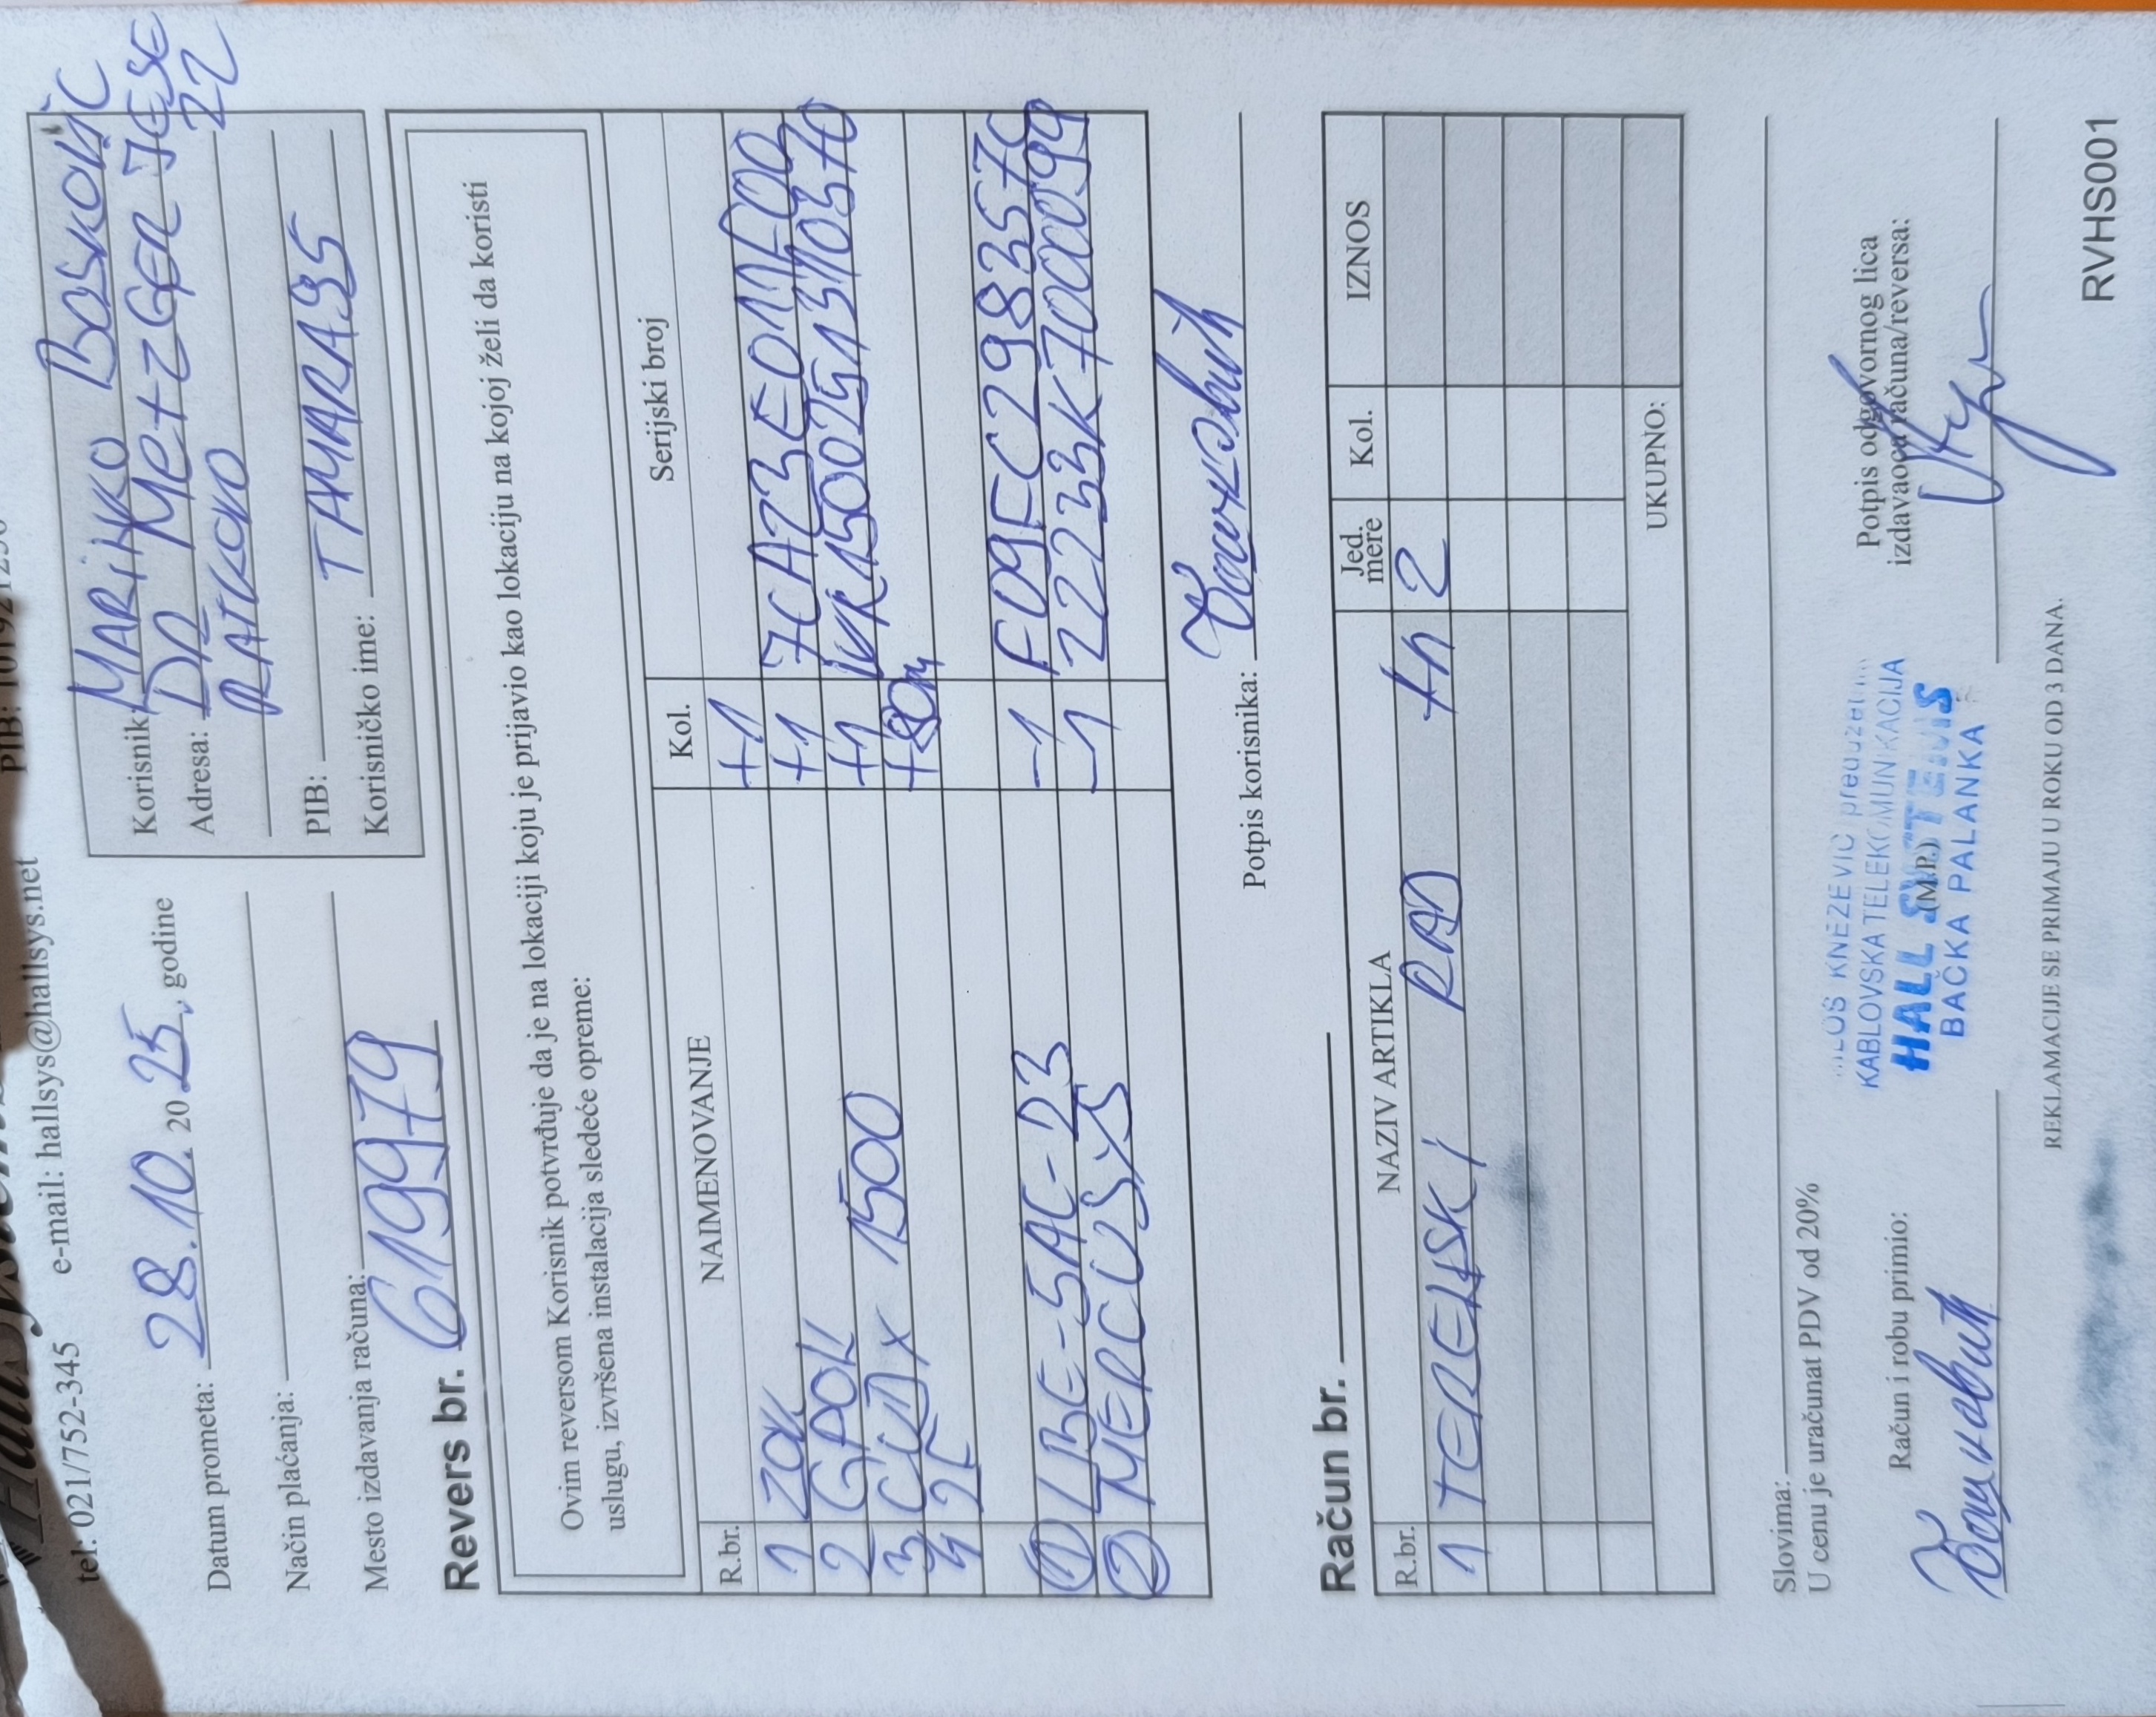 tel: 021/752-345 e-mail: hallsys@hallsys.net
Datum prometa: 28.10. 2025, godine
Način plaćanja:
Mesto izdavanja računa:
Korisnik: MARINKO BOSKOVIĆ
Adresa: DR Metzger JESE 22
RATKOVO
PIB:
Korisničko ime: TAMARA95
Revers br. 619979
Ovim reversom Korisnik potvrđuje da je na lokaciji koju je prijavio kao lokaciju na kojoj želi da koristi
uslugu, izvršena instalacija sledeće opreme:
R.br. NAIMENOVANJE Kol. Serijski broj
1 ZOK +1
2 GPON +1 7CA23E01
3 CUDY 1500 +1
4 2F +80m
1 LBE-5AC-23 -1 F09FC298357C
2 MERCUSYS -1 2233K7000099
Potpis korisnika:
Račun br.
R.br. NAZIV ARTIKLA Jed. mere Kol. IZNOS
1 TERENSKI RAD +h 2
UKUPNO:
Slovima:
U cenu je uračunat PDV od 20%
Račun i robu primio:
KNEZEVIĆ
KABLOVSKA TELEKOMUNIKACIJA
HALL
(M.P.)
BAČKA PALANKA
Potpis odgovornog lica
izdavaoca računa/reversa:
REKLAMACIJE SE PRIMAJU U ROKU OD 3 DANA.
RVHS001